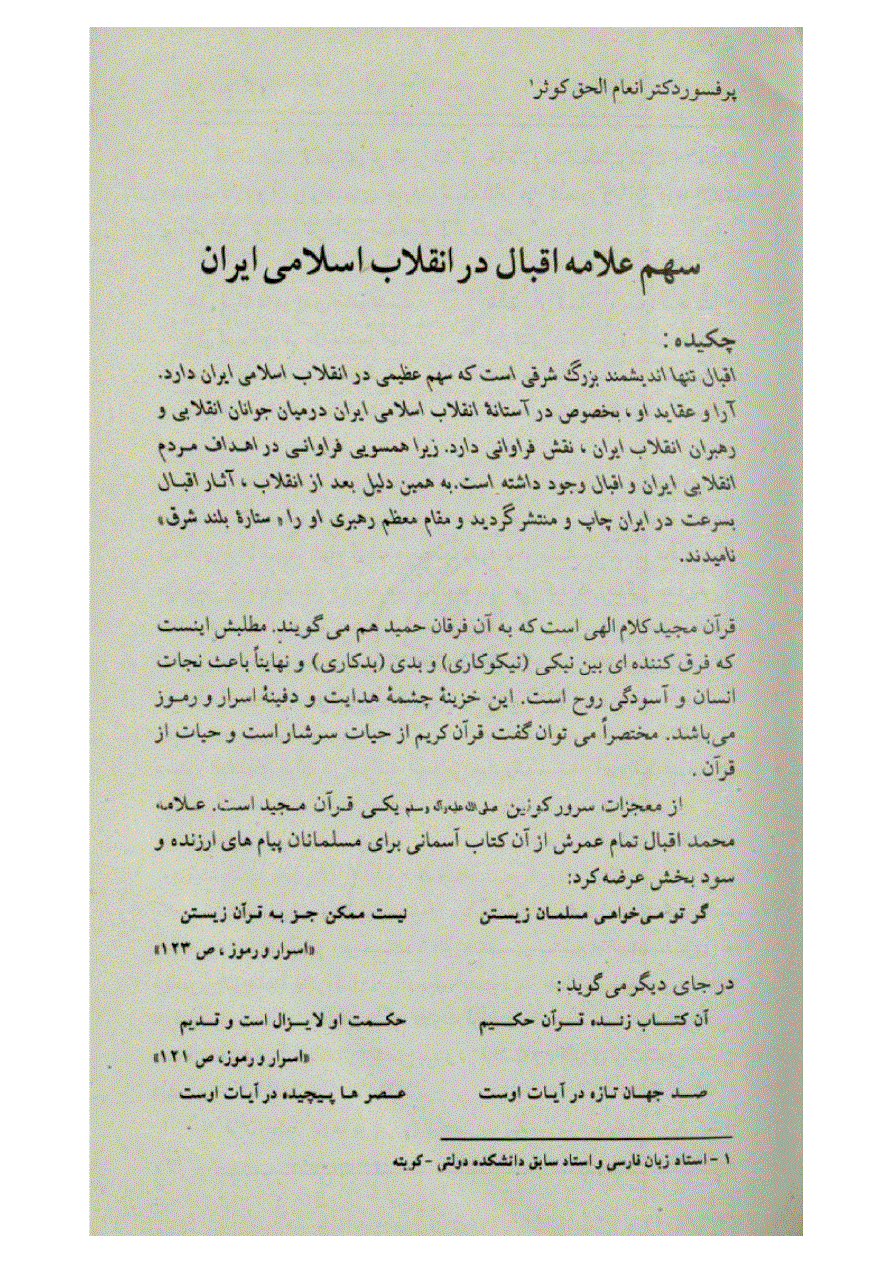 پرفسور دکتر انعام الحق کوثر۱
سهم علامه اقبال در انقلاب اسلامی ایران
چکیده :
اقبال تنها اندیشمند بزرگ شرقی است که سهم عظیمی در انقلاب اسلامی ایران دارد.
آرا و عقاید او ، بخصوص در آستانهٔ انقلاب اسلامی ایران درمیان جوانان انقلابی و
رهبران انقلاب ایران ، نقش فراوانی دارد. زیرا همسویی فراوانی در اهداف مردم
انقلابی ایران و اقبال وجود داشته است.به همین دلیل بعد از انقلاب ، آثار اقبال
بسرعت در ایران چاپ و منتشر گردید و مقام معظم رهبری او را « ستارهٔ بلند شرق»
نامیدند.
قرآن مجید کلام الهی است که به آن فرقان حمید هم می گویند. مطلبش اینست
که فرق کننده ای بین نیکی (نیکوکاری) و بدی (بدکاری) و نهایتاً باعث نجات
انسان و آسودگی روح است. این خزینهٔ چشمهٔ هدایت و دفینهٔ اسرار و رموز
می‌باشد. مختصراً می توان گفت قرآن کریم از حیات سرشار است و حیات از
قرآن .
از معجزات سرور کونین صلی‌الله‌علیه‌وآله وسلم یکی قرآن مجید است. علامه
محمد اقبال تمام عمرش از آن کتاب آسمانی برای مسلمانان پیام های ارزنده و
سود بخش عرضه کرد:
گر تو می‌خواهی مسلمان زیستن نیست ممکن جز به قرآن زیستن
«اسرار و رموز ، ص ۱۲۳»
در جای دیگر می‌گوید :
آن کتاب زنده قرآن حکیم حکمت او لایزال است و قدیم
«اسرار و رموز، ص ۱۲۱»
صد جهان تازه در آیات اوست عصر ها پیچیده در آیات اوست
۱ - استاد زبان فارسی و استاد سابق دانشکده دولتی - کویته